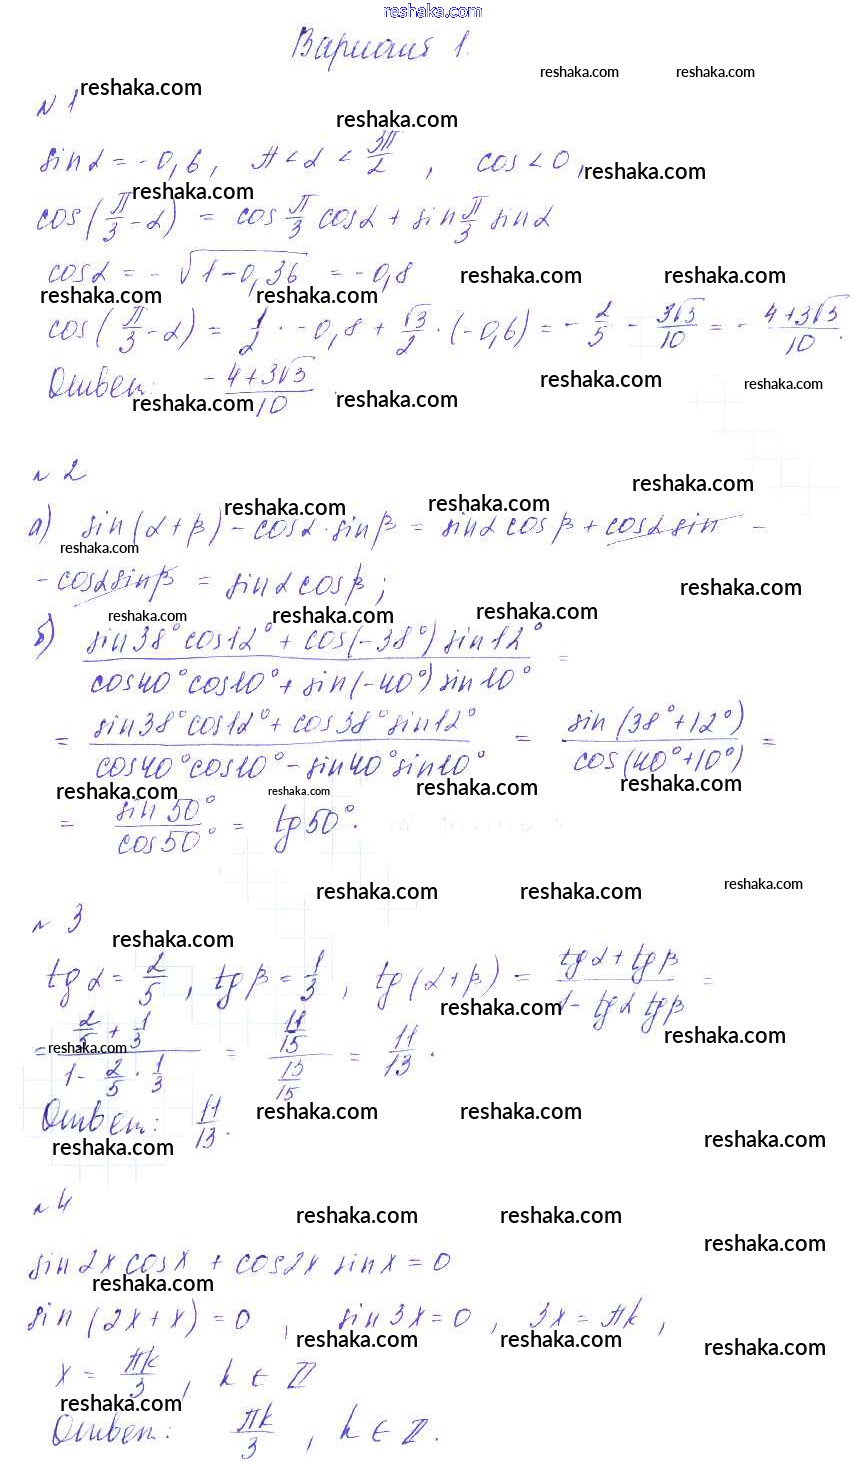 reshaka.com
Вариант 1.
reshaka.com reshaka.com
reshaka.com
№ 1
reshaka.com
sin α = -0,6, π < α < 3π/2, cos < 0,
reshaka.com
reshaka.com
cos(π/3 - α) = cos π/3 cos α + sin π/3 sin α
cos α = - √(1 - 0,36) = -0,8
reshaka.com reshaka.com
reshaka.com reshaka.com
cos(π/3 - α) = 1/2 · -0,8 + √3/2 · (-0,6) = - 2/5 - 3√3/10 = - (4+3√3)/10.
reshaka.com reshaka.com
Ответ: - (4+3√3)/10.
reshaka.com reshaka.com
№ 2
reshaka.com
reshaka.com reshaka.com
а) sin(α + β) - cos α · sin β = sin α cos β + cos α sin -
reshaka.com
- cos α sin β = sin α cos β;
reshaka.com
reshaka.com reshaka.com reshaka.com
б) (sin 38° cos 12° + cos(-38°) sin 12°)/(cos 40° cos 10° + sin(-40°) sin 10°) =
= (sin 38° cos 12° + cos 38° sin 12°)/(cos 40° cos 10° - sin 40° sin 10°) = sin(38° + 12°)/cos(40° + 10°) =
reshaka.com reshaka.com reshaka.com reshaka.com
= sin 50°/cos 50° = tg 50°.
reshaka.com reshaka.com reshaka.com
№ 3
reshaka.com
tg α = 2/5, tg β = 1/3, tg(α + β) = (tg α + tg β)/(1 - tg α tg β) =
reshaka.com
reshaka.com
reshaka.com
= (2/5 + 1/3)/(1 - 2/5 · 1/3) = (11/15)/(13/15) = 11/13.
reshaka.com reshaka.com
Ответ: 11/13.
reshaka.com
reshaka.com
№ 4
reshaka.com reshaka.com
reshaka.com
sin 2x cos x + cos 2x sin x = 0
reshaka.com
sin(2x + x) = 0, sin 3x = 0, 3x = πk,
reshaka.com reshaka.com reshaka.com
x = πk/3, k ∈ Z
reshaka.com
Ответ: πk/3, k ∈ Z.